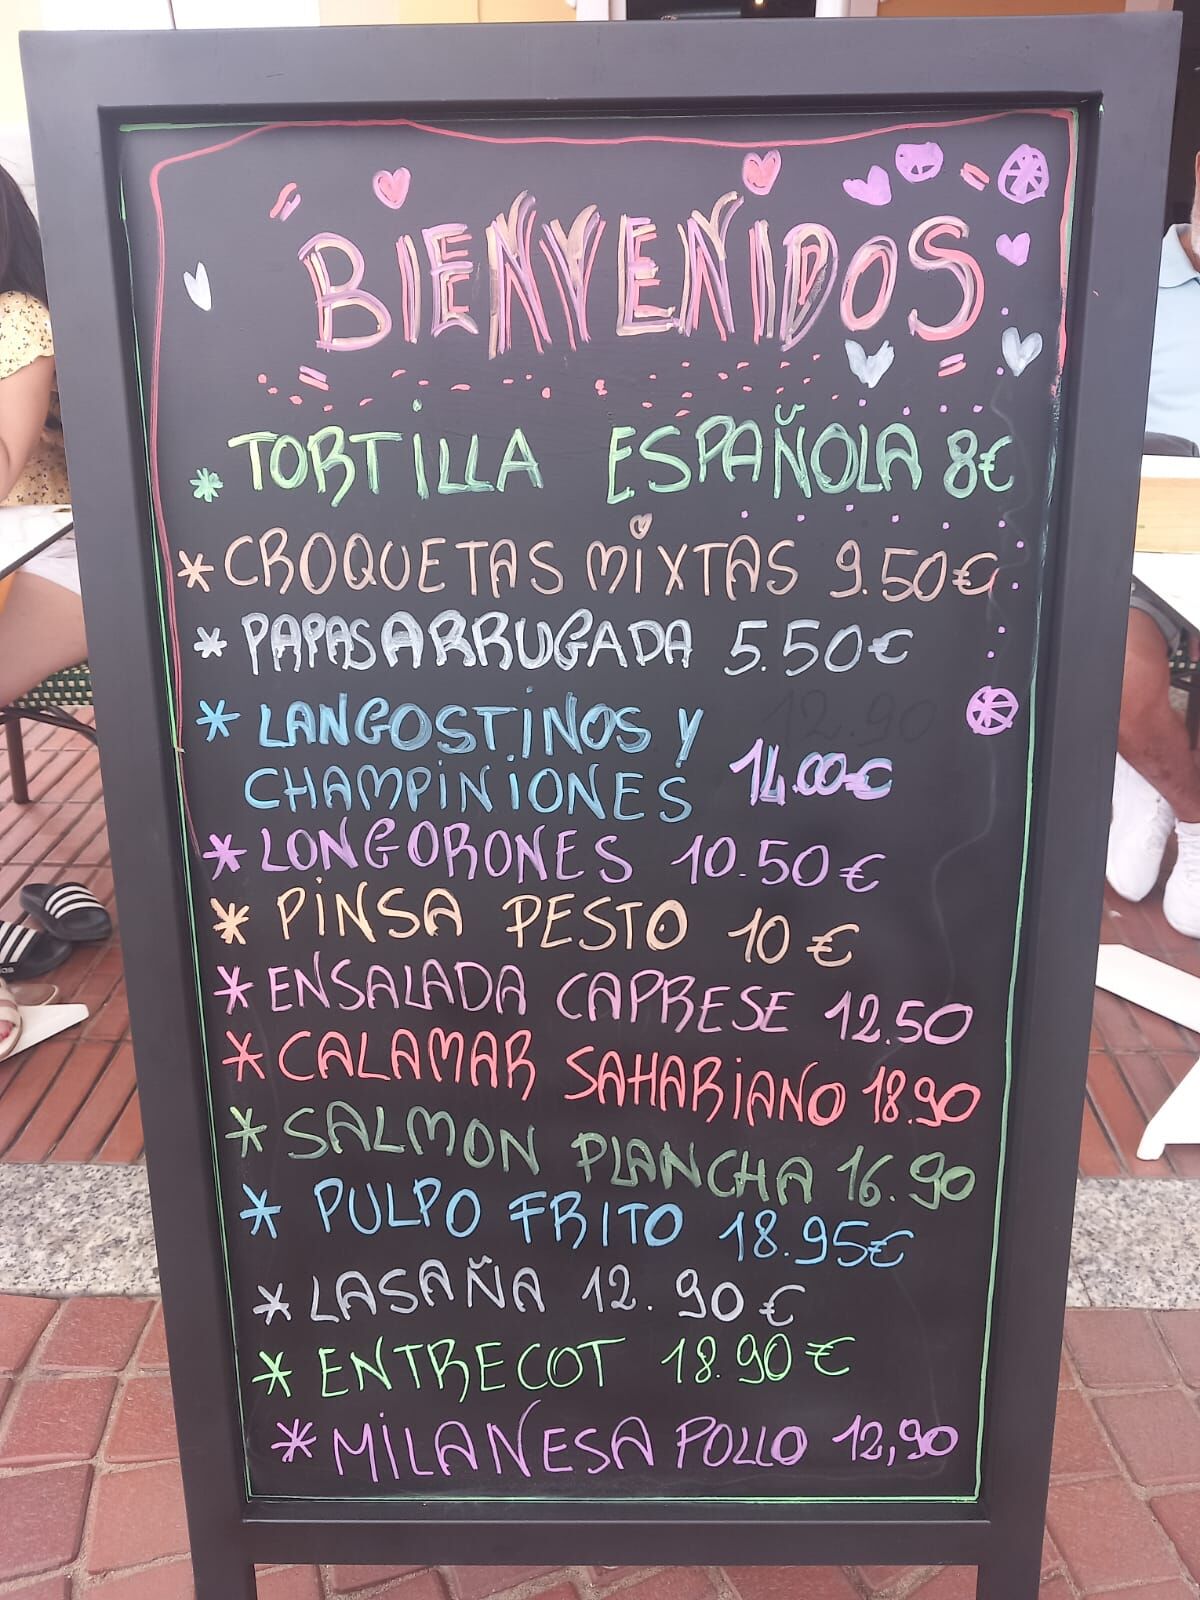 BIENVENIDOS
* TORTILLA ESPAÑOLA 8€
* CROQUETAS MIXTAS 9.50€
* PAPAS ARRUGADA 5.50€
12.90
* LANGOSTINOS Y
CHAMPINIONES 14.00€
* LONGORONES 10.50€
* PINSA PESTO 10€
* ENSALADA CAPRESE 12.50
* CALAMAR SAHARIANO 18.90
* SALMON PLANCHA 16.90
* PULPO FRITO 18.95€
* LASAÑA 12.90€
* ENTRECOT 18.90€
* MILANESA POLLO 12,90